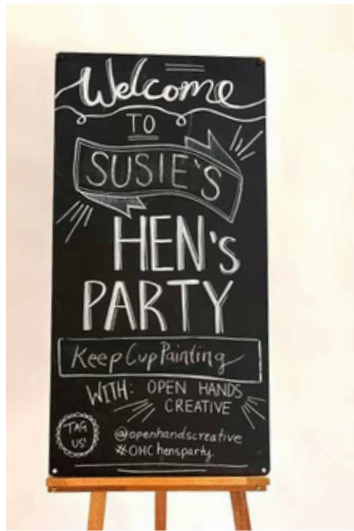 Welcome
TO
SUSIE'S
HEN's
PARTY
Keep Cup Painting
WITH: OPEN HANDS
CREATIVE
TAG
US!
@openhandscreative
#OHChensparty